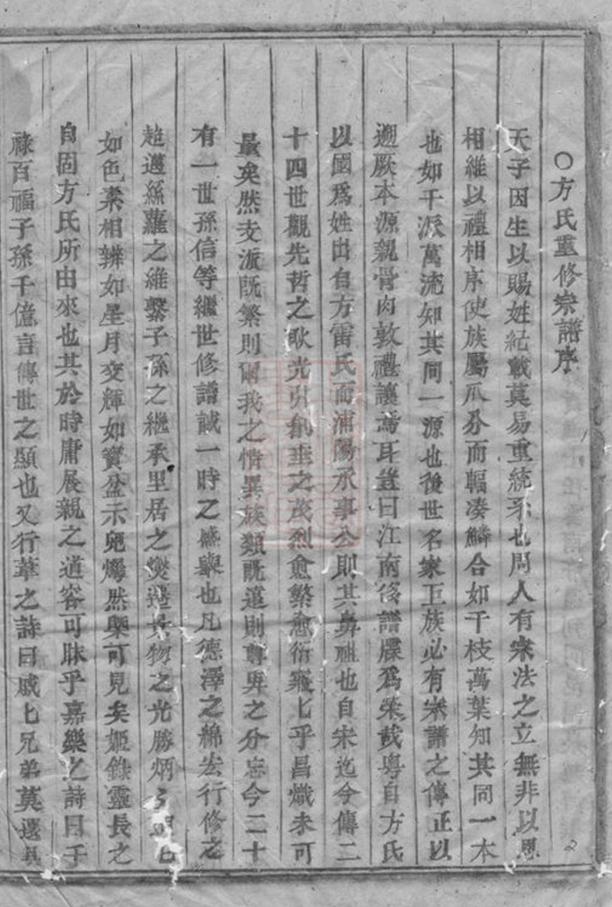 ○方氏重修宗譜序
天子因生以賜姓紀載莫易重統系也周人有宗法之立無非以恩
相維以禮相序使族屬瓜分而輻凑鱗合如千枝萬葉知其同一本
也如千派萬流知其同一源也後世名家巨族必有宗譜之傳正以
遡厥本源親骨肉敦禮讓焉耳豈曰江南後譜牒為榮哉粤自方氏
以國為姓出自方雷氏而浦陽承事公則其鼻祖也自宋迄今傳二
十四世觀先哲之耿光與創垂之茂烈愈繁愈衍巍巍乎昌熾未可
量矣然支派既繁則爾我之情異族類既遠則尊卑之分忘今二十
有一世孫信等繼世修譜誠一時之盛舉也凡德澤之綿宏行修之
超邁絲蘿之維繫子孫之繼承里居之爕遷景物之光勝炳
如色素相辨如星月交輝如寳盆示兒燭然舉可見矣姬錄靈長之
自固方氏所由來也其於時庸展親之道容可昧乎嘉樂之詩曰千
祿百福子孫千億言傳世之顯也又行葦之詩曰戚七兄弟莫遠具
2